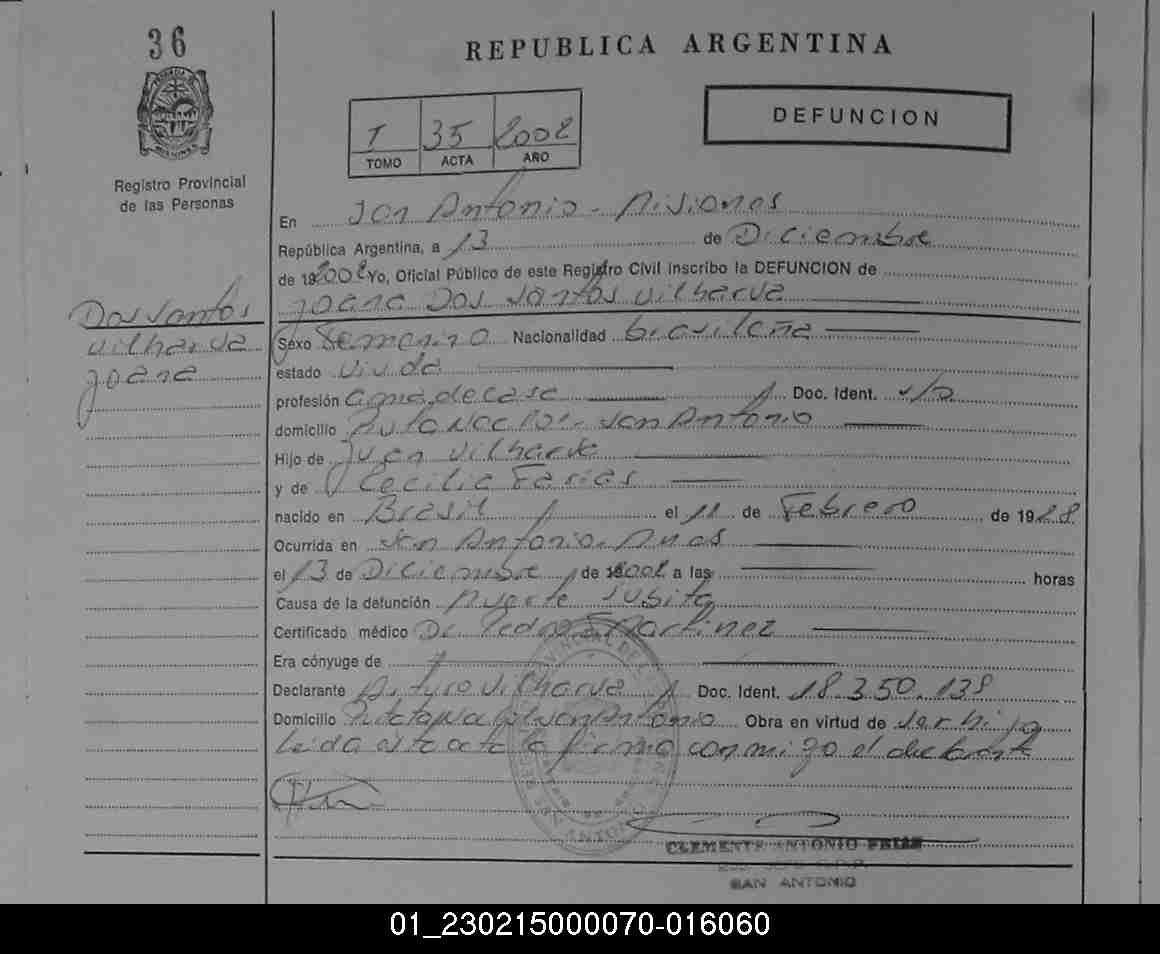 36
REPUBLICA ARGENTINA
I 35 2002
TOMO ACTA AÑO
DEFUNCION
Registro Provincial
de las Personas
En San Antonio - Misiones
República Argentina, a 13 de Diciembre
de 192002 Yo, Oficial Público de este Registro Civil inscribo la DEFUNCION de
Joana Dos Santos Vilharva
Dos Santos
Vilharva
Joana
Sexo Femenino Nacionalidad brasileña
estado Viuda
profesión ama de casa Doc. Ident. s/D
domicilio San Antonio
Hijo de Juan Vilharva
y de Cecilia Farias
nacido en Brasil el 11 de Febrero de 1928
Ocurrida en San Antonio. Mnes
el 13 de Diciembre de 2002 a las horas
Causa de la defunción Muerte Subita
Certificado médico Dr Pedro Martinez
Era cónyuge de
Declarante Arturo Vilharva Doc. Ident. 18.350.138
Domicilio San Antonio Obra en virtud de ser hijo
Leida esta acta la firma conmigo el declarante
CLEMENTE ANTONIO
SAN ANTONIO
01_230215000070-016060